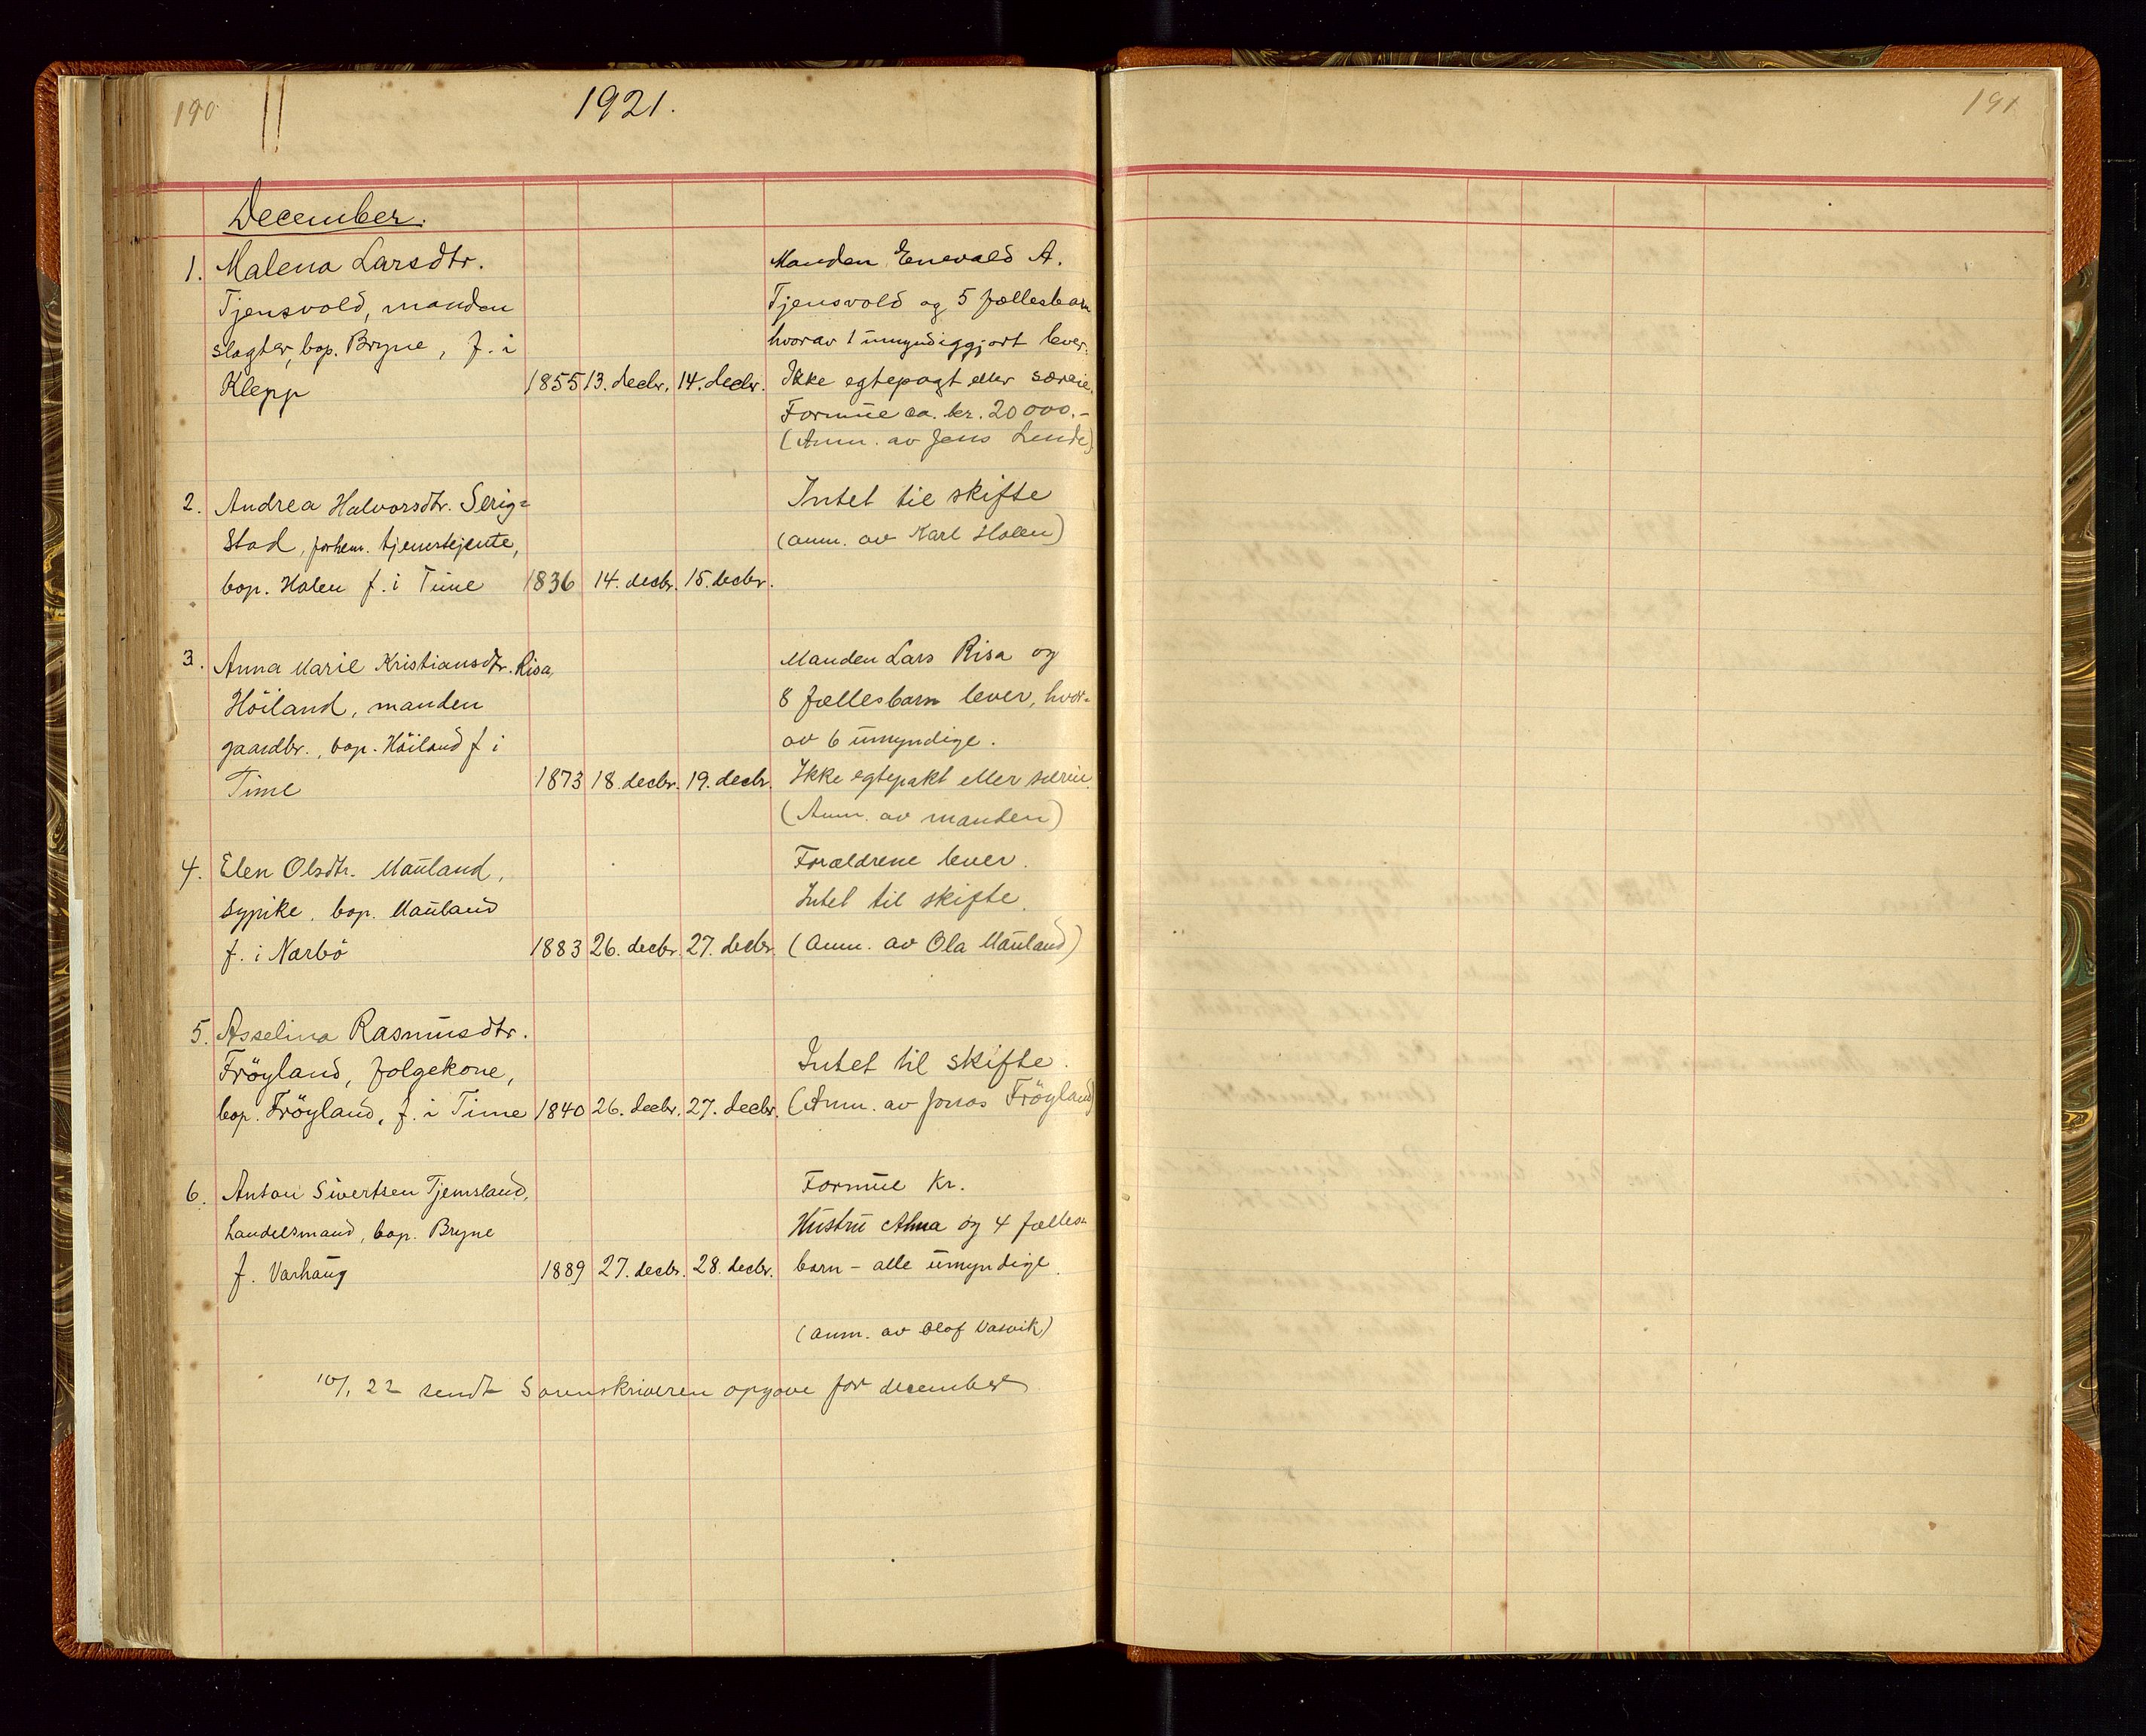 190
1921.
191
December.
1. Malena Larsdtr.
Tjensvold, manden
slagter, bop. Bryne, f. i
Klepp 1855 13. decbr. 14. decbr.
Manden Enevald A.
Tjensvold og 5 fællesbarn
hvorav 1 umyndiggjort lever.
Ikke egtepagt eller særeie.
Formue ca. kr. 20000.-
(Anm. av Jens Lende)
2. Andrea Halvorsdtr. Serig=
stad, forhen. tjenestejente,
bop. Holen f. i Time 1836 14. decbr. 15. decbr.
Intet til skifte
(anm. av Karl Holen)
3. Anna Marie Kristiansdtr. Risa,
Höiland, manden
gaardbr., bop. Höiland f. i
Time 1873 18. decbr. 19. decbr.
Manden Lars Risa og
8 fællesbarn lever, hvor-
av 6 umyndige.
Ikke egtepakt eller særeie.
(Anm. av manden)
4. Elen Olsdtr. Mauland,
sypike, bop. Mauland
f. i Nærbö 1883 26. decbr. 27. decbr.
Forældrene lever.
Intet til skifte.
(anm. av Ola Mauland)
5. Asselina Rasmusdtr.
Fröyland, folgekone,
bop. Fröyland, f. i Time 1840 26. decbr. 27. decbr.
Intet til skifte.
(Anm. av Jonas Fröyland)
6. Anton Sivertsen Tjemsland,
handelsmand, bop. Bryne
f. Varhaug 1889 27. decbr. 28. decbr.
Formue Kr.
Hustru Alma og 4 fælles-
barn - alle umyndige.
(anm. av Olof Vasvik)
10/1 22 sendt Sorenskriveren opgave for december